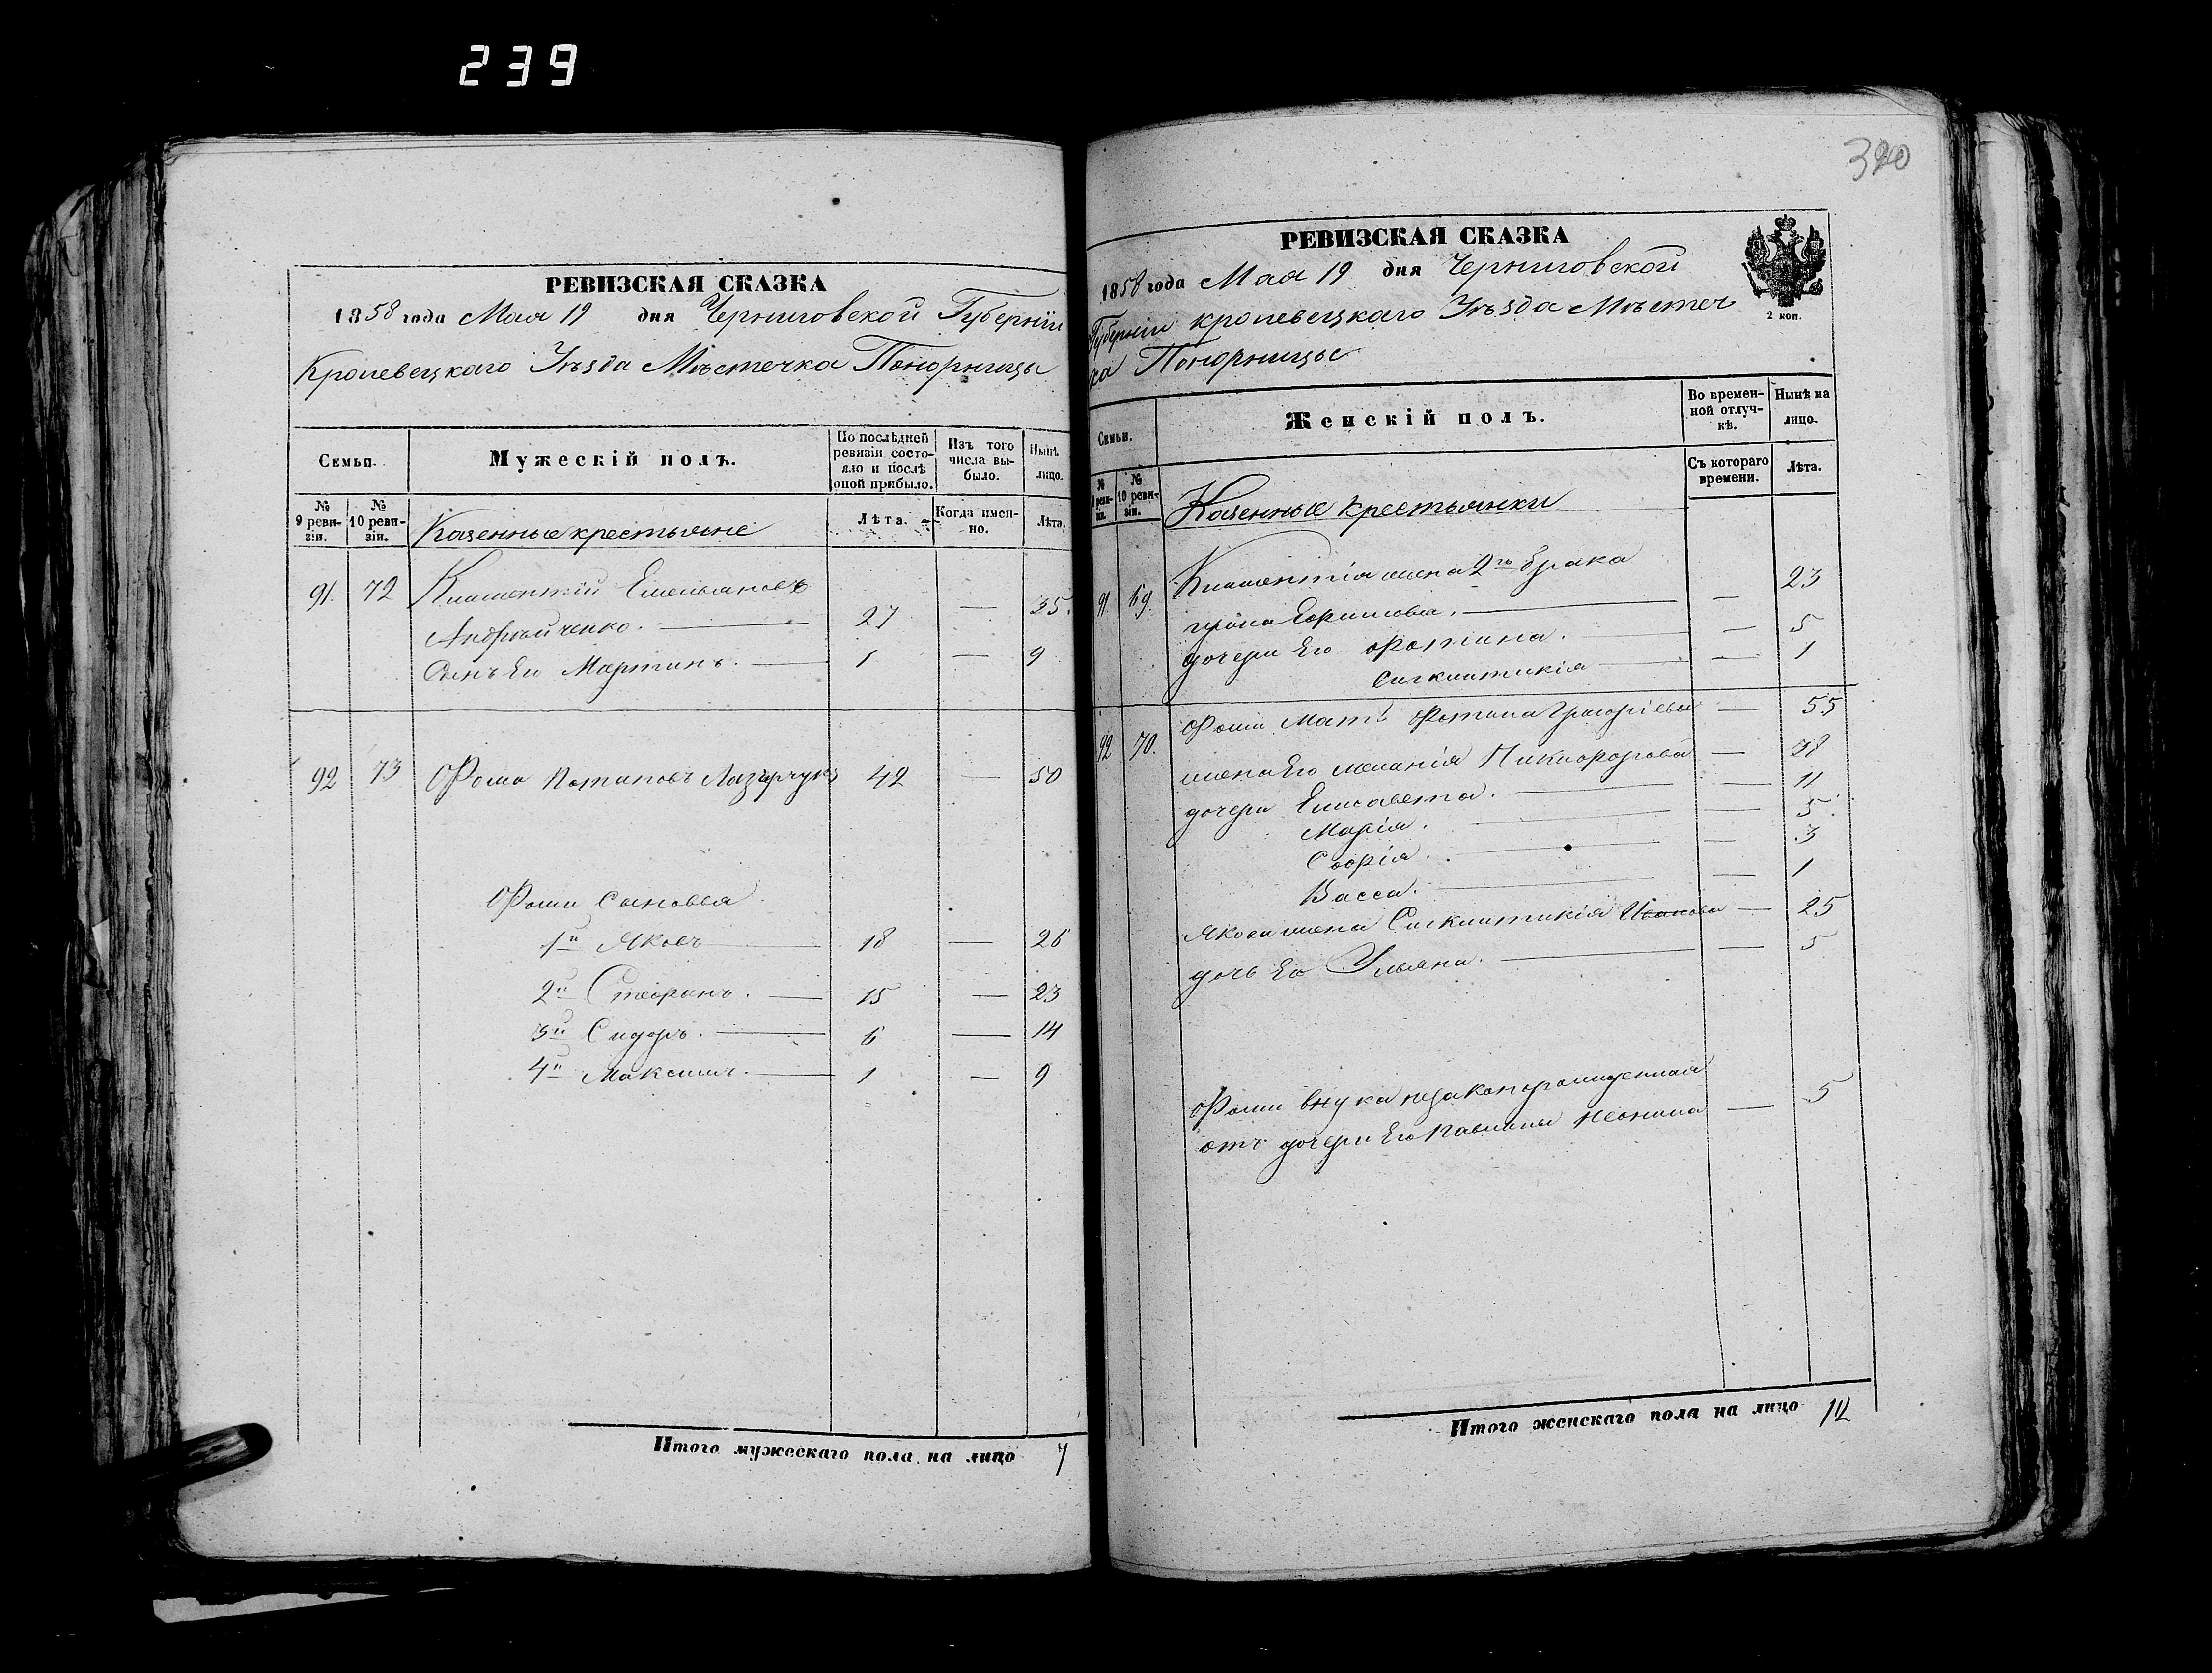 239
РЕВИЗСКАЯ СКАЗКА
1858 года Мая 19 дня Черниговской Губерніи
Кролевецкаго Уѣзда Мѣстечка Понорницы
Семьи.
Мужескій полъ.
По послѣдней ревизіи состояло и послѣ оной прибыло.
Изъ того числа выбыло.
Нынѣ лицо.
№ 9 ревизіи.
№ 10 ревизіи.
Казенные крестьяне
Лѣта.
Когда именно.
Лѣта.
91. 72 Климентій Емельяновъ
Андрѣйченко. 27 — 35.
Сынъ Его Мартинъ. 1 — 9
92 73 Фома Потаповъ Лазарчукъ 42 — 50
Фомы Сыновья
1й Яковъ 18 — 26
2й Стефанъ. 15 — 23
3й Сидоръ. 6 — 14
4й Максимъ. 1 — 9
Итого мужескаго пола на лицо 7
390
РЕВИЗСКАЯ СКАЗКА
1858 года Мая 19 дня Черниговской
Губерніи кролевецкаго Уѣзда Мѣстеч
ка Понорницы
2 коп.
Семьи.
Женскій полъ.
Во временной отлучкѣ.
Нынѣ на лицо.
№ 9 ревизіи.
№ 10 ревизіи.
Казенные крестьянки
Съ котораго времени.
Лѣта.
91 69. Климентія жена 2го брака
Ефимова. — 23
дочери Его Фотина. — 5
Сигклитикія — 1
92 70. Фомы Мать Фотина Григоріева — 55
жена Его Меланія Никифорова — 38
дочери Елисавета. — 11
Марія. — 5.
Софія. — 3
Васса. — 1
Якова жена Сигклитикія Иванова — 25
дочь Его Ульяна. — 5
Фомы внука незаконорожденная
отъ дочери Его Павлины Неонила — 5
Итого женскаго пола на лицо 12